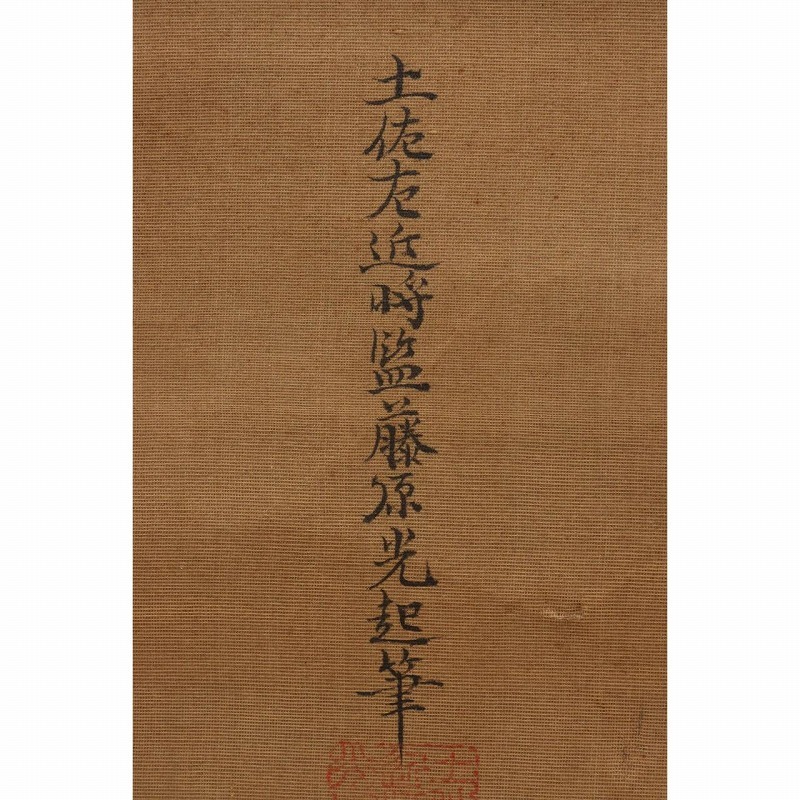 土佐左近将監藤原光起筆